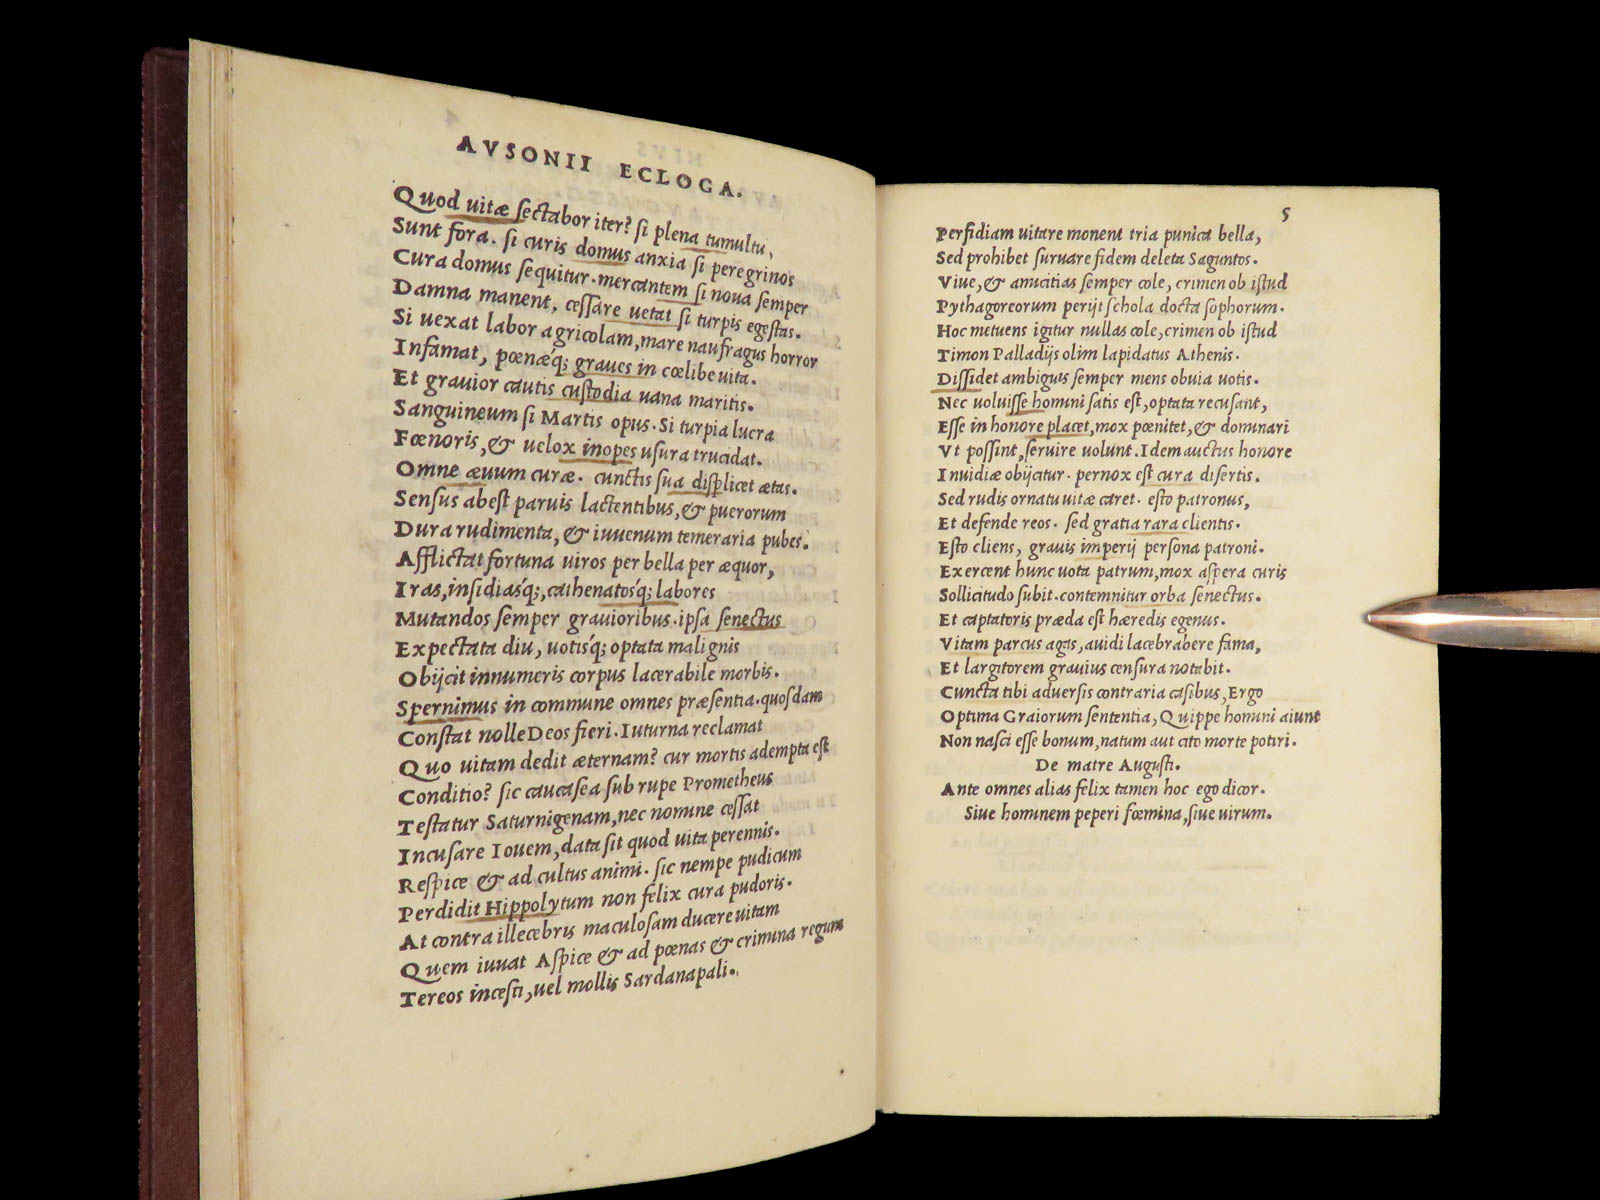 AVSONII ECLOGA.
Quod uitæ ſectabor iter? ſi plena tumultu,
Sunt fora. ſi curis domus anxia ſi peregrinos
Cura domus ſequitur. mercantem ſi noua ſemper
Damna manent, ceſſare uetat ſi turpis egeſtas.
Si uexat labor agricolam, mare naufragus horror
Infamat, pœnæq́; graues in cœlibe uita.
Et grauior cautis cuſtodia uana maritis.
Sanguineum ſi Martis opus. Si turpia lucra
Fœnoris, & uelox inopes uſura trucidat.
Omne æuum curæ. cunctis ſua diſplicet ætas.
Senſus abeſt paruis lactentibus, & puerorum
Dura rudimenta, & iuuenum temeraria pubes.
Afflictat fortuna uiros per bella per æquor,
Iras, inſidiasq́;, cathenatosq́; labores
Mutandos ſemper grauioribus. ipſa ſenectus
Expectata diu, uotisq́; optata malignis
Obijcit innumeris corpus lacerabile morbis.
Spernimus in commune omnes præſentia. quoſdam
Conſtat nolle Deos fieri. Iuturna reclamat
Quo uitam dedit æternam? cur mortis adempta eſt
Conditio? ſic caucaſea ſub rupe Prometheus
Teſtatur Saturnigenam, nec nomine ceſſat
Incuſare Iouem, data ſit quod uita perennis.
Reſpice & ad cultus animi. ſic nempe pudicum
Perdidit Hippolytum non felix cura pudoris.
At contra illecebris maculoſam ducere uitam
Quem iuuat Aſpice & ad pœnas & crimina regum
Tereos inceſti, uel mollis Sardanapali.
5
Perfidiam uitare monent tria punica bella,
Sed prohibet ſuruare fidem deleta Saguntos.
Viue, & amicitias ſemper cole, crimen ob iſtud
Pythagoreorum perijt ſchola docta ſophorum.
Hoc metuens igitur nullas cole, crimen ob iſtud
Timon Palladijs olim lapidatus Athenis.
Diſſidet ambiguis ſemper mens obuia uotis.
Nec uoluiſſe homini ſatis eſt, optata recuſant,
Eſſe in honore placet, mox pœnitet, & dominari
Vt poſſint, ſeruire uolunt. Idem auctus honore
Inuidiæ obijcitur. pernox eſt cura diſertis.
Sed rudis ornatu uitæ caret. eſto patronus,
Et defende reos. ſed gratia rara clientis.
Eſto cliens, grauis imperij perſona patroni.
Exercent hunc uota patrum, mox aſpera curis
Sollicitudo ſubit. contemnitur orba ſenectus.
Et captatoris præda eſt hæredis egenus.
Vitam parcus agas, auidi lacebrabere fama,
Et largitorem grauius cenſura notabit.
Cuncta tibi aduerſis contraria caſibus, Ergo
Optima Graiorum ſententia, Quippe homini aiunt
Non naſci eſſe bonum, natum aut cito morte potiri.
De matre Auguſti.
Ante omnes alias felix tamen hoc ego dicor.
Siue hominem peperi fœmina, ſiue uirum.